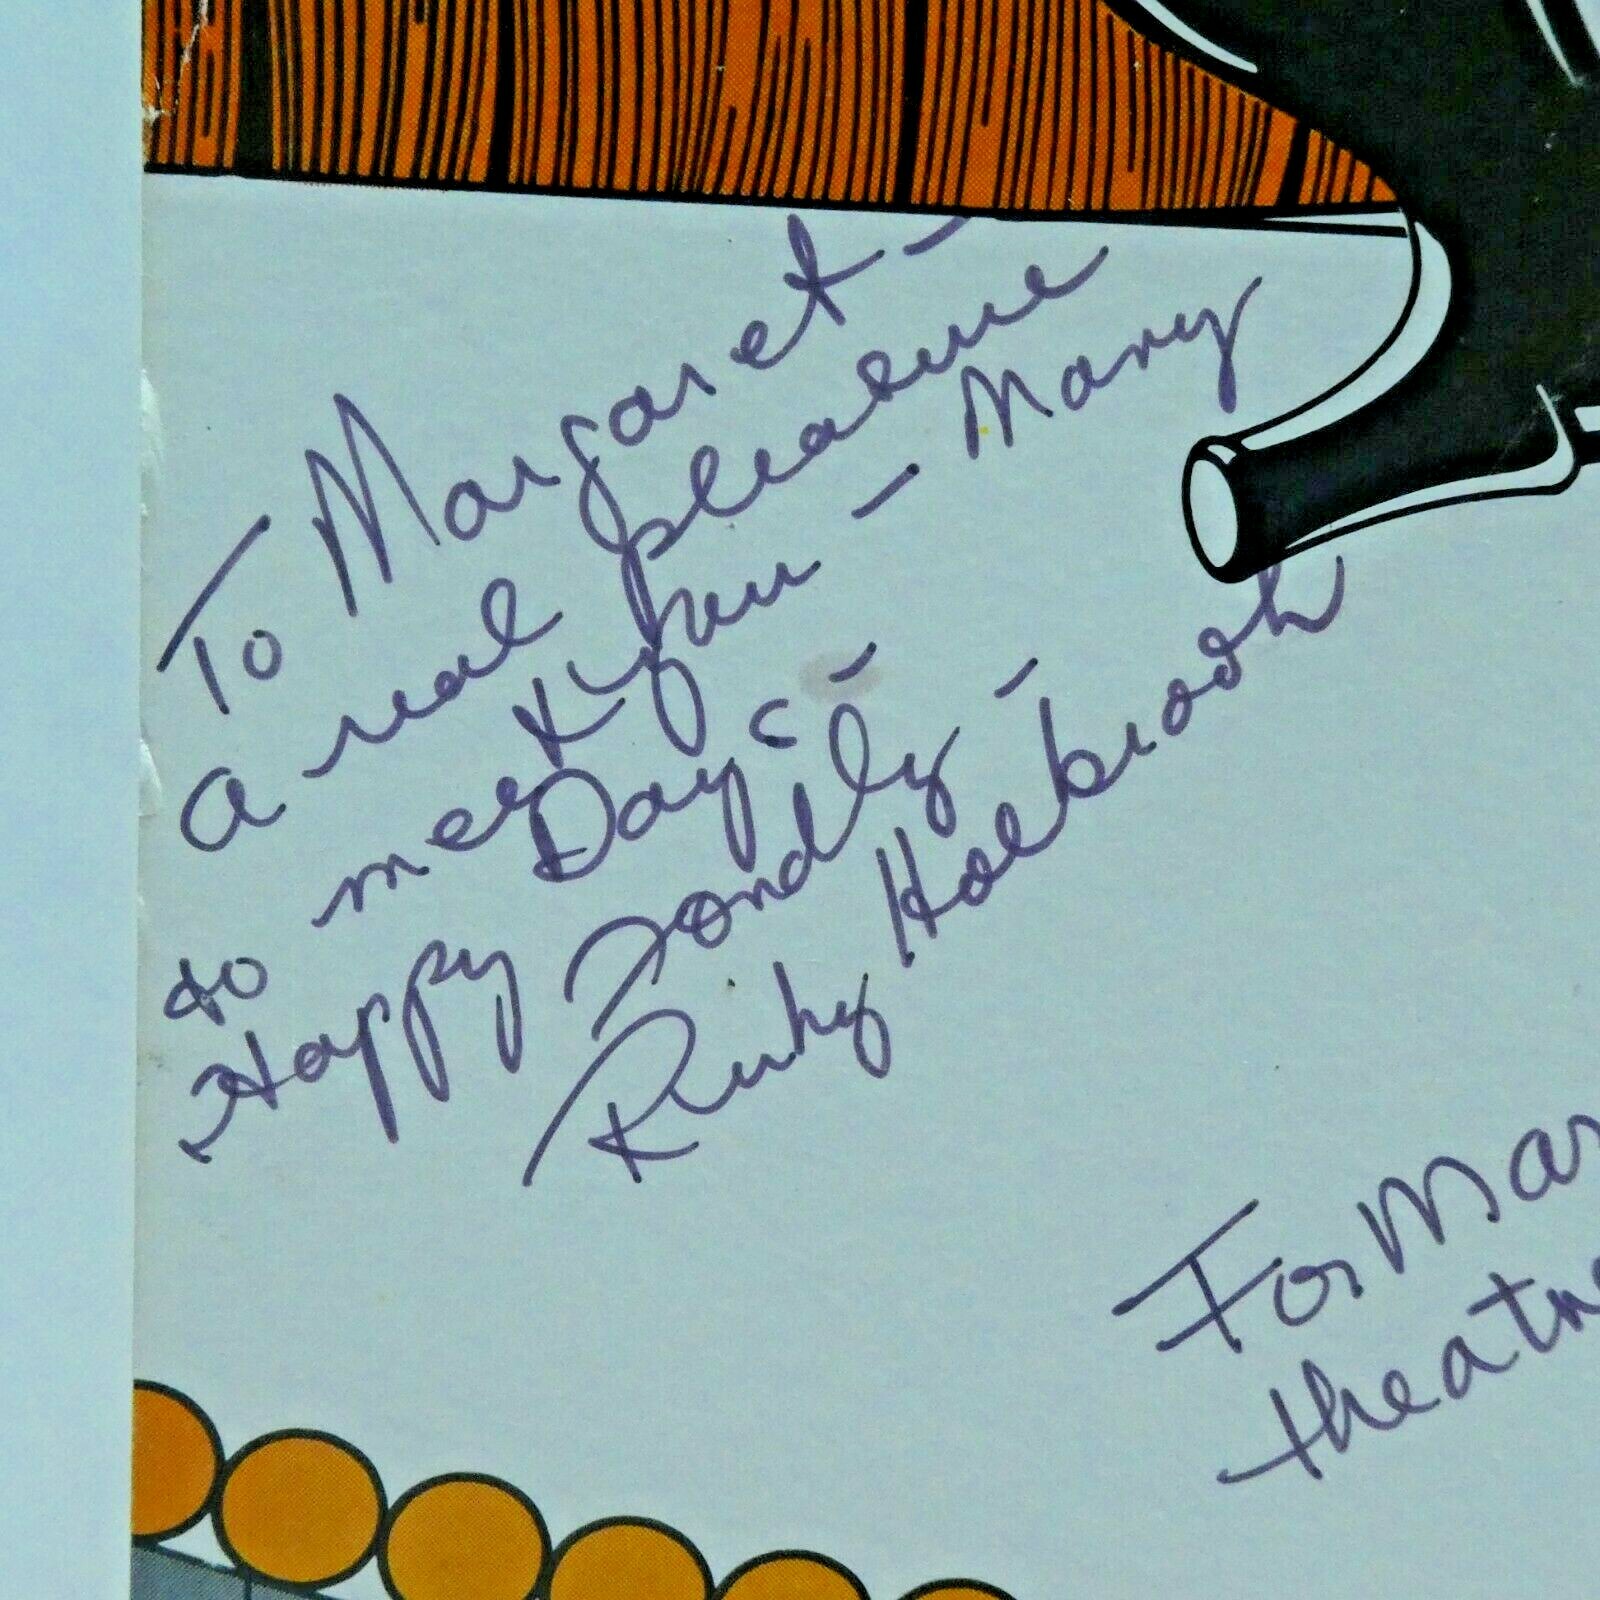 To Margaret -
a real pleasure
to meet you - Many
Happy Days -
Fondly -
Ruby Holbrook
For Mar
theatre